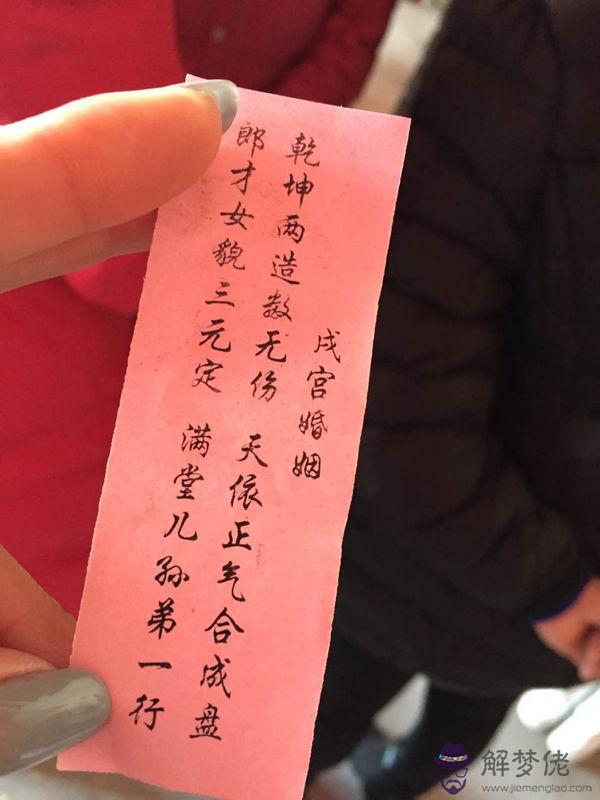 戌宫婚姻
乾坤两造数无伤 天依正气合成盘
郎才女貌三元定 满堂儿孙第一行
解梦佬
www.jiemenglao.com